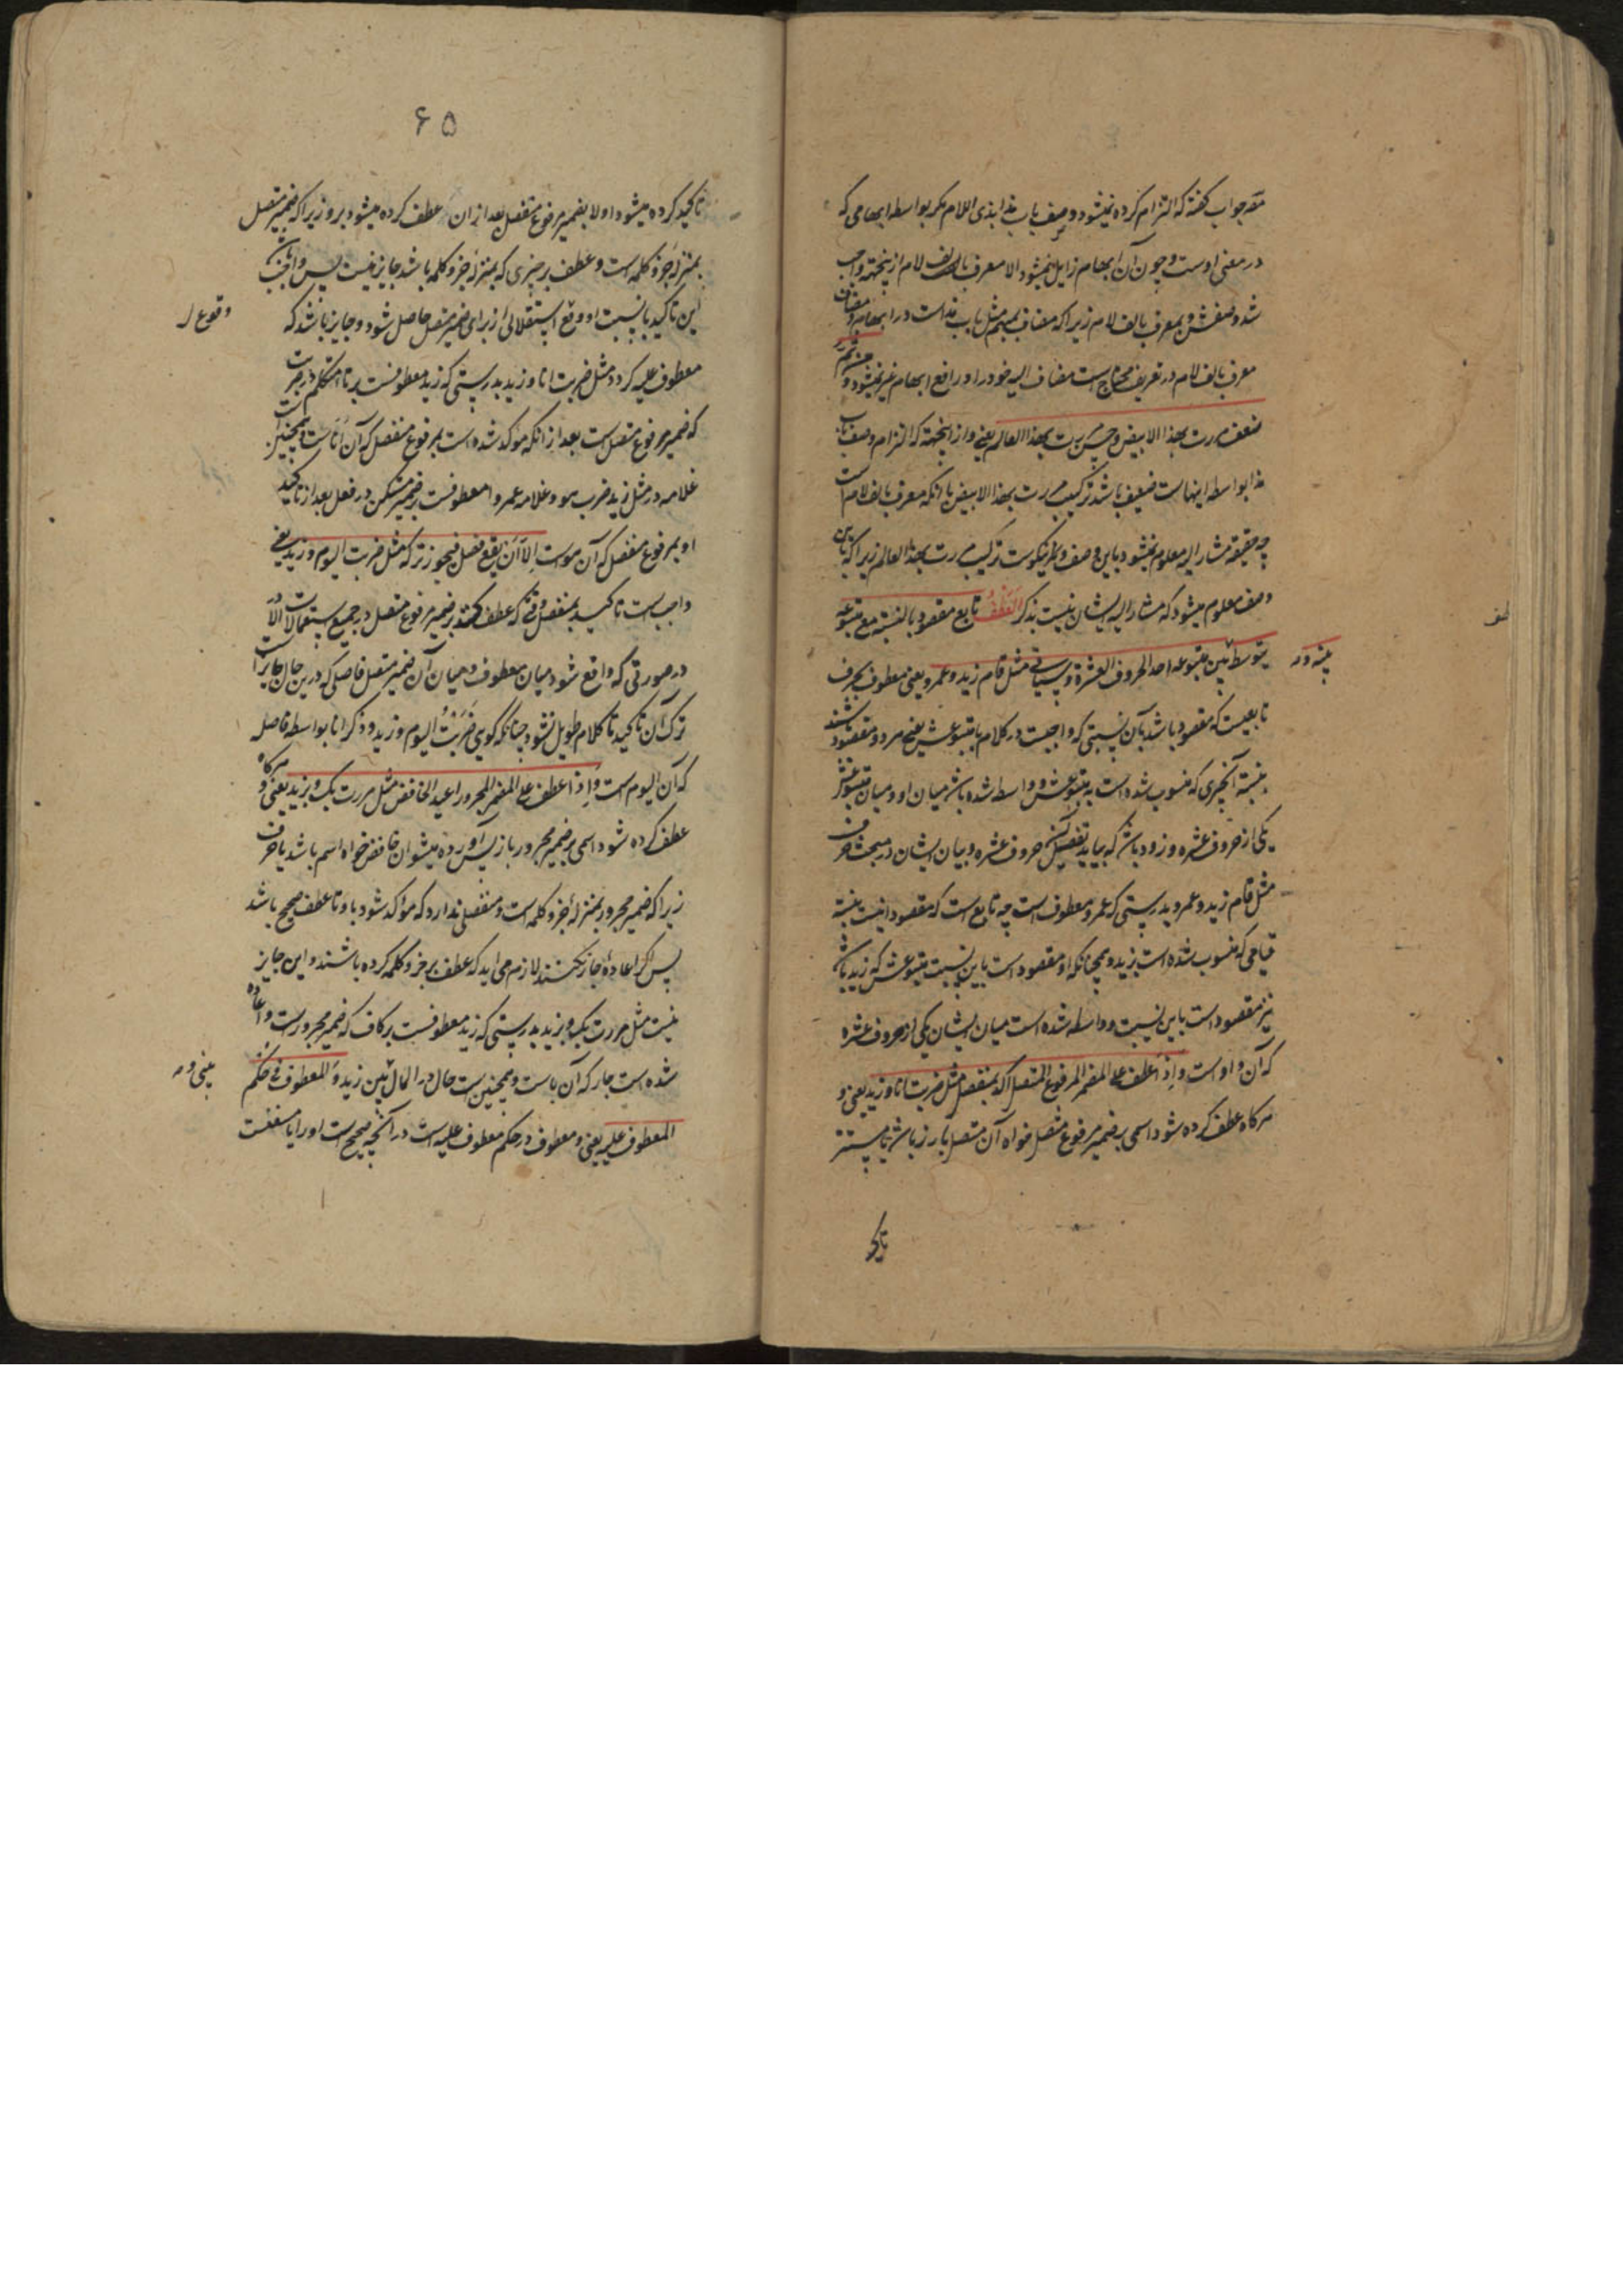 مقدر جواب گفته که التزام کرده نمیشود وصف باب هذا بذی اللام مکر بواسطه ابهامی که
در معنی اوست و چون آن ابهام زایل نمیشود الا معرف بالف لام ازینجهة واجب
شد وصفش بمعرف بالف لام زیراکه مضاف بمبهم مثل باب هذا است در ابهام و مضاف
معرف بالف لام در تعریف محتاج است مضاف الیه خود را و رافع ابهام غیر نمیشود و من ثم
ضعف مررت بهذا الابیض و حسن مررت بهذا العالم یعنی و از اینجهة که التزام وصف باب
هذا بواسطه اینهاست ضعیف باشد ترکیب مررت بهذا الابیض با آنکه معرف بالف لام است
چه حقیقة مشار الیه معلوم نمیشود باین وصف و نیکوست ترکیب مررت بهذا العالم زیراکه باین
وصف معلوم میشود که مشار الیه ایشان نیست بذکر العطف تابع مقصود بالنسبة مع متبوعه
یتوسط بین متبوعه احد الحروف العشرة و سیاتی مثل قام زید و عمرو یعنی معطوف بحرف
تابعیست که مقصود باشد بآن نسبتی که واقعست در کلام با متبوعش یعنی هر دو مقصود باشند
بنسبة آنچیزی که منسوب شده است به متبوعش و واسطه شده باشد میان او و میان متبوعش
یکی از حروف عشره و زود باشد که بیاید تفصیل حروف عشره و بیان ایشان در مبحث حرف
مثل قام زید و عمرو بدرستی که عمرو معطوف است چه تابع است که مقصود است بنسبة
قیامی که منسوب شده است بزید و همچنانکه او مقصود است باین نسبت متبوعش که زید باشد
نیز مقصود است باین نسبت و واسطه شده است میان ایشان یکی از حروف عشره
که آن واو است و اذا عطف علی المضمر المرفوع المتصل اکد بمنفصل مثل ضربت انا و زید یعنی و
هرکاه عطف کرده شود اسمی بر ضمیر مرفوع متصل خواه آن متصل بارز باشد یا مستتر
تاکید
۶۵
تاکید کرده میشود اولا بضمیر مرفوع منفصل بعد از ان عطف کرده میشود برو زیراکه ضمیر متصل
بمنزله جزؤ کلمه است و عطف بر چیزی که بمنزله جزو کلمه باشد جایز نیست پس واجب
این تاکید بانسبت او وقع استقلالی از برای ضمیر متصل حاصل شود و جایز باشد که
وقوع
معطوف علیه کردد مثل ضربت انا و زید بدرستی که زید معطوفست بر تا متکلم در ضربت
که ضمیر مرفوع متصل است بعد از انکه مؤکد شده است بمرفوع منفصل که آن اناست و همچنین
غلامه در مثل زید ضرب هو و غلامه عمروا معطوفست بر ضمیر متمکن در فعل بعد از تاکید
او بمرفوع منفصل که آن هو است الا ان یقع فصل فیجوز ترکه مثل ضربت الیوم و زید یعنی
واجبست تاکید بمنفصل وقتی که عطف کنند بر ضمیر مرفوع متصل در جمیع استعمالات الا
در صورتی که واقع شود میان معطوف و میان آن ضمیر متصل فاصلی که درین حال جایز است
ترک آن تاکید تا کلام طویل نشود چنانکه کوی ضربت الیوم و زید و ذکر انا بواسطه فاصله
که آن الیوم است و اذا عطف علی المضمر المجرور اعید الخافض مثل مررت بک و بزید یعنی و هرکاه
عطف کرده شود اسمی بر ضمیر مجرور باز پس آورده میشود ان خافض خواه اسم باشد یا حرف
زیراکه ضمیر مجرور بمنزله جزو کلمه است و منفصلی ندارد که مؤاکد شود باو تا عطف صحیح باشد
پس اکر اعاده جار نکنند لازم می اید که عطف بر جزو کلمه کرده باشند و این جایز
نیست مثل مررت بک و بزید بدرستی که زید معطوفست بر کاف که ضمیر مجرور است و اعاده
شده است جار که آن باست و همچنین است حال در المال بین زید و المعطوف فی حکم
المعطوف علیه یعنی و معطوف در حکم معطوف علیه است در آنچه صحیح است او را یا ممتنعست